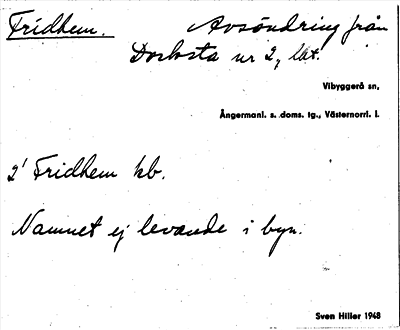 Fridhem. Avsöndring från
Docksta nr 2, lät.
Vibyggerå sn,
Ångermanl. s. doms. tg., Västernorrl. l.
2' Fridhem kb.
Namnet ej levande i byn.
Sven Hiller 1948